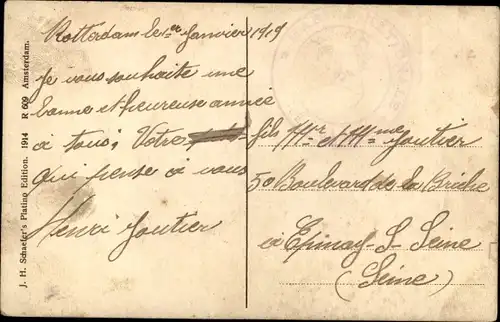 Rotterdam le 1er Janvier 1919
Je vous souhaite une
bonne et heureuse année
à tous, Votre fils
qui pense à vous
Henri Gautier
Mr et Mme Gautier
50 Boulevard de la Briche
à Epinay-S-Seine
(Seine)
J. H. Schaefer's Platino Edition. 1914 R 609 Amsterdam.